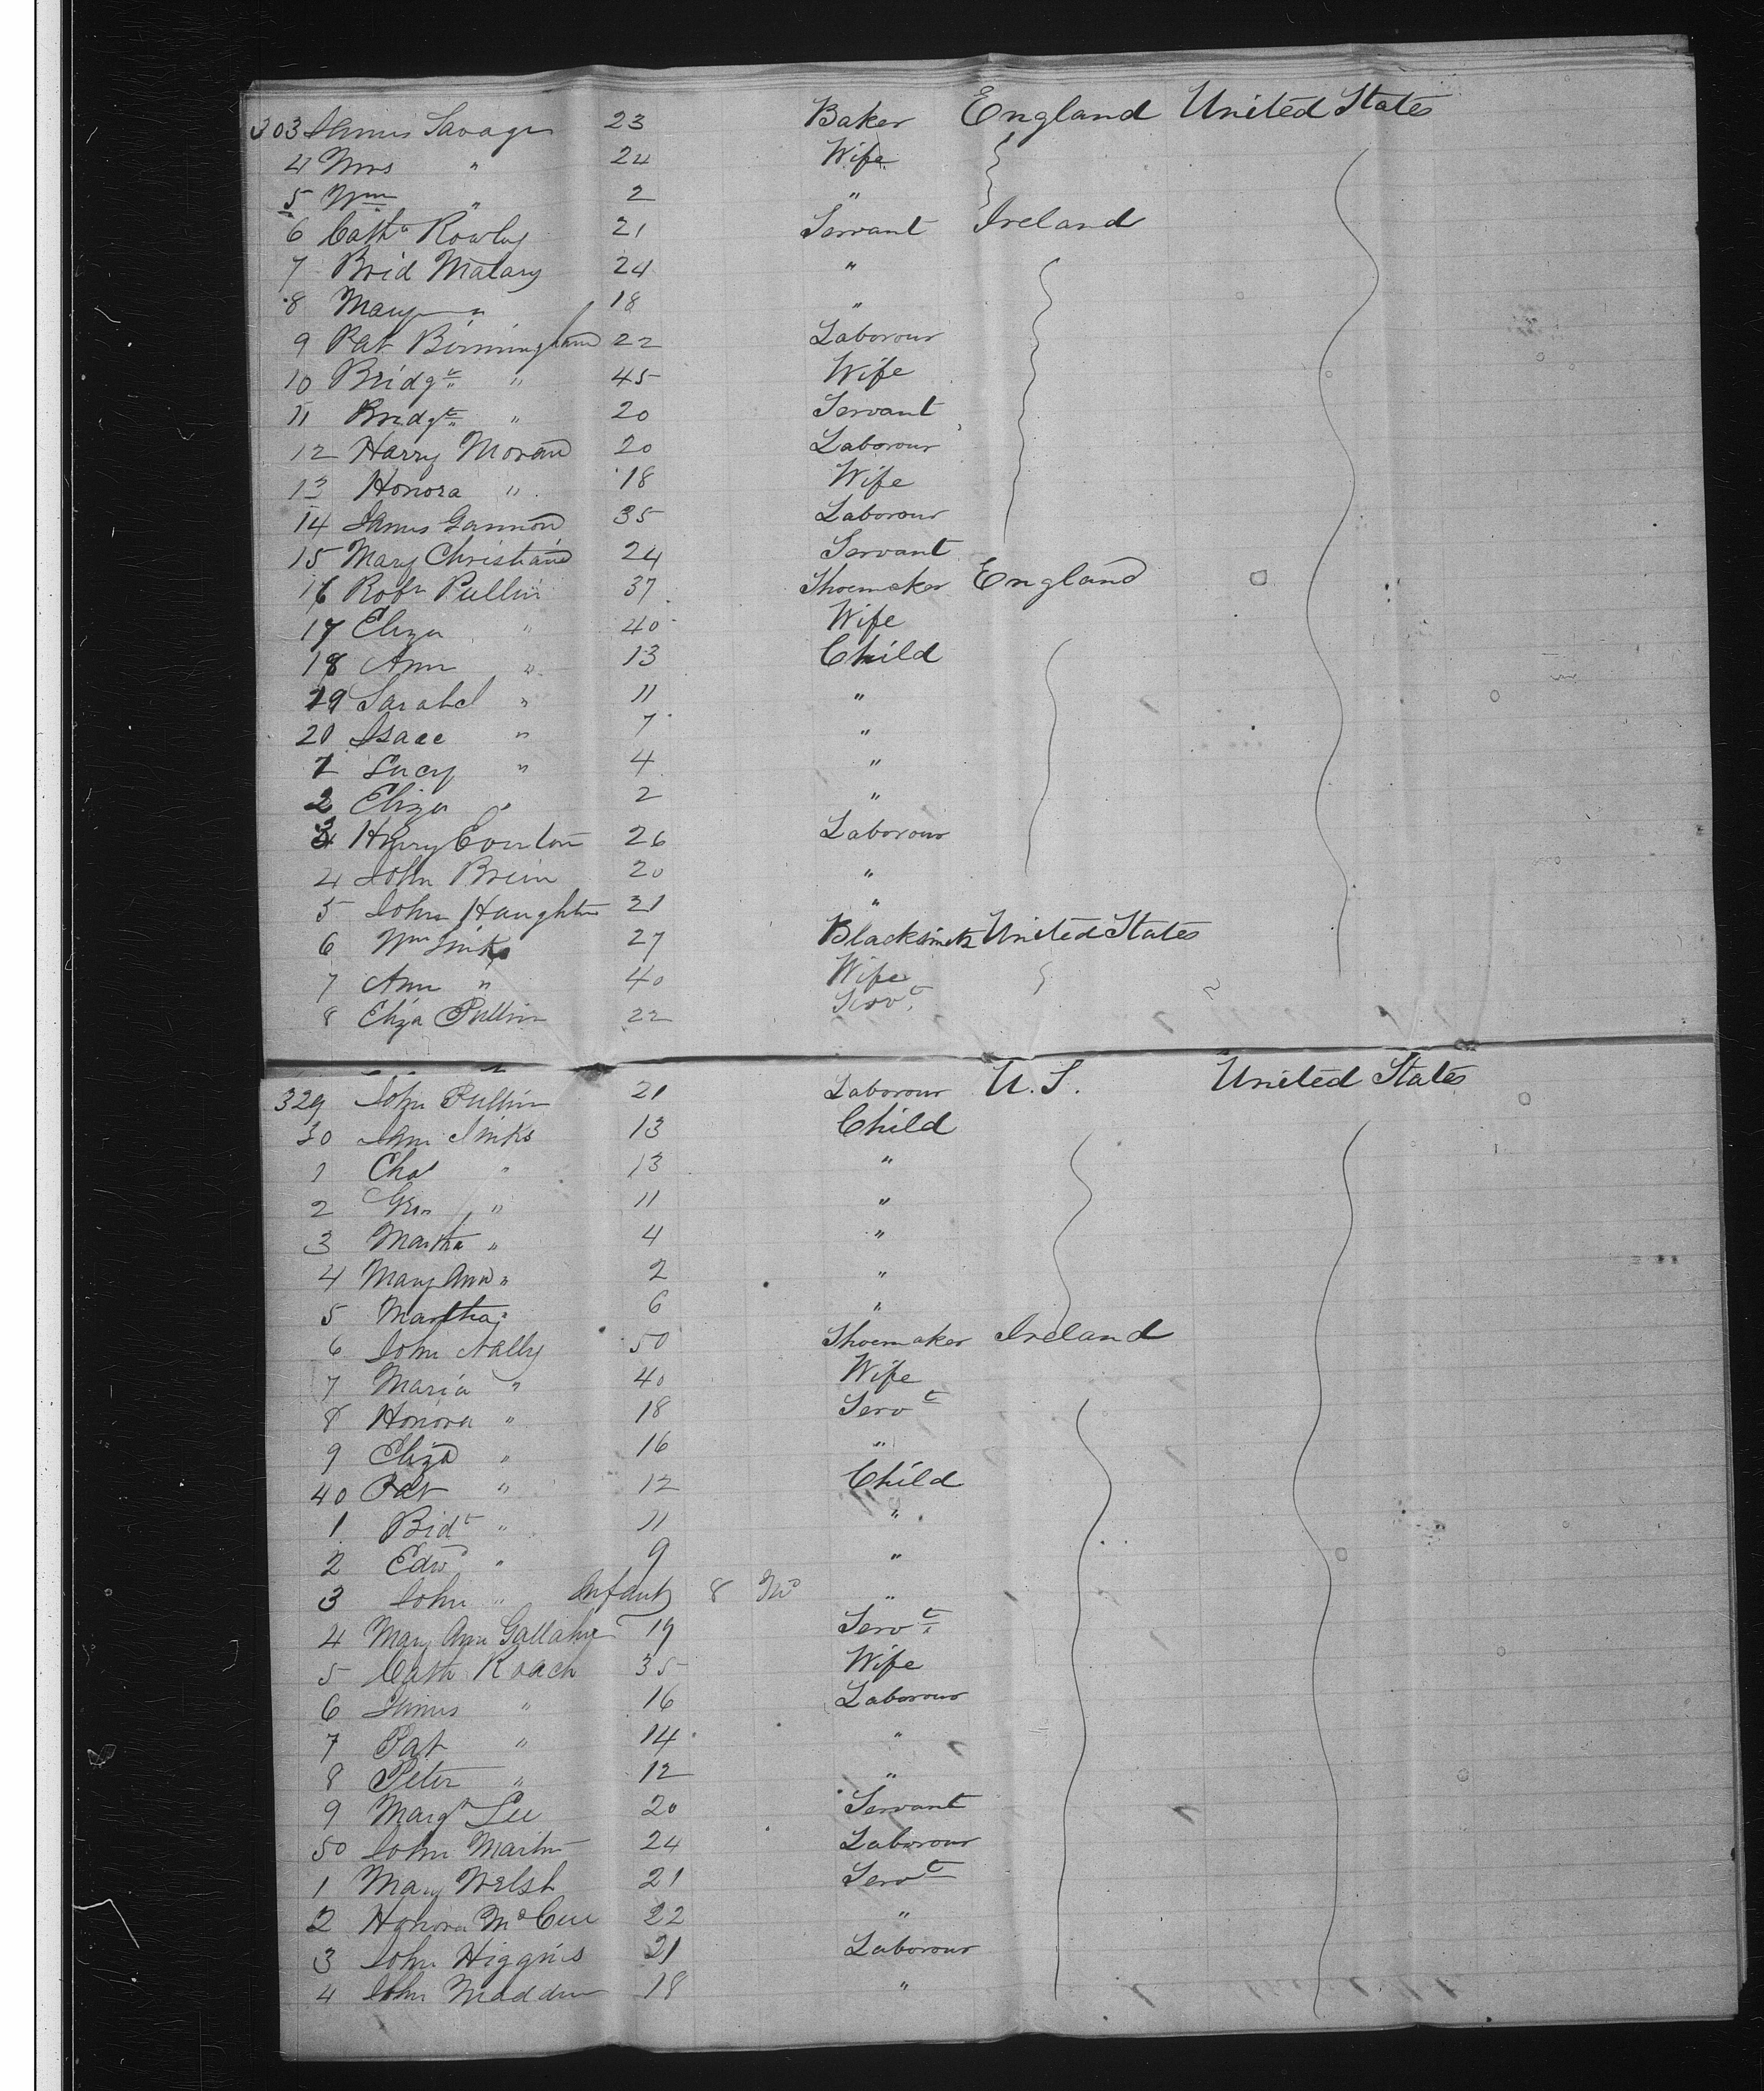 303 James Savage 23 Baker England United States
4 Mrs " 24 Wife
5 Wm " 2 "
6 Cath Rowley 21 Servant Ireland
7 Brid Malany 24 "
8 Mary " 18 "
9 Pat Birmingham 22 Laborour
10 Bridgt " 45 Wife
11 Bridgt " 20 Servant
12 Harry Moran 20 Laborour
13 Honora " 18 Wife
14 James Gannon 35 Laborour
15 Mary Christian 24 Servant
16 Robt Pullin 37 Shoemaker England
17 Eliza " 40 Wife
18 Ann " 13 Child
19 Sarah " 11 "
20 Isaac " 7 "
1 Lucy " 4 "
2 Eliza " 2 "
3 Henry 26 Laborour
4 John 20 "
5 John Haughton 21 "
6 Wm Jinks 27 Blacksmith United States
7 Ann " 40 Wife
8 Eliza Pullin 22 Servt
329 John Pullin 21 Laborour U.S. United States
30 Jinks 13 Child
1 Chas " 13 "
2 Geo " 11 "
3 Martha " 4 "
4 Mary Ann " 2 "
5 Martha " 6 "
6 John Nally 50 Shoemaker Ireland
7 Maria " 40 Wife
8 Honora " 18 Servt
9 Eliza " 16 "
40 Pat " 12 Child
1 Bidt " 11 "
2 Edwd " 9 "
3 John " Infant 8 Mo "
4 Mary Ann Gallaher 19 Servt
5 Cath Roach 35 Wife
6 James " 16 Laborour
7 Pat " 14 "
8 Peter " 12 "
9 Margt Lee 20 Servant
50 John Martin 24 Laborour
1 Mary Welsh 21 Servt
2 Honora McCue 22 "
3 John Higgins 21 Laborour
4 John Madden 18 "